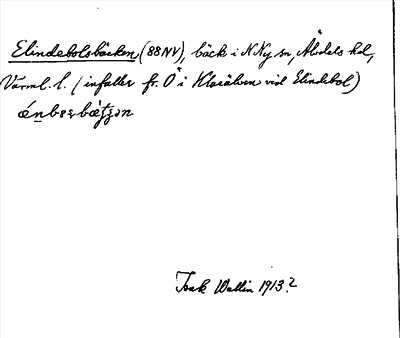 Elindebolsbäcken (88NV), bäck i N Ny sn, Älvdals hd,
Värml. l. (infaller fr. Ö i Klarälven vid Elindebol)
Isak Wallin 1913?